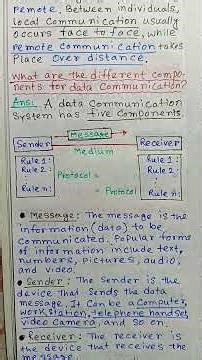 remote. Between individuals,
local communication usually
occurs face to face, while
remote communication takes
Place over distance.
What are the different compo-
nents for data communication?
Ans: A data communication
System has five components.
Message
Sender
Receiver
Medium
Rule 1:
Rule 2:
Rule n:
Protocol
Protocol
Rule 1:
Rule 2:
Rule n:
• Message: The message is the
information (data) to be
communicated. Popular forms
of information include text,
numbers, pictures, audio,
and video.
• Sender: The sender is the
device that sends the data
message. It can be a computer,
workstation, telephone handset,
video camera, and so on.
• Receiver: The receiver is
the device that receives the
message.